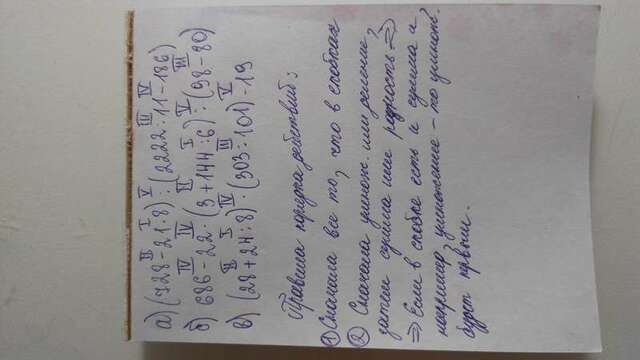 II I V III IV
а) (728-21·8):(2222:11-186)
IV III II I V III
б) 686-22·(3+144:6):(98-80)
II I IV III V
в) (28+24:8)·(303:101)-19
Правила порядка действий:
① Сначала все то, что в скобках
② Сначала умнож. или деление,
затем сумма или разность ⇒
⇒ Если в скобке есть и сумма и,
например, умножение - то умнож.
будет первым.